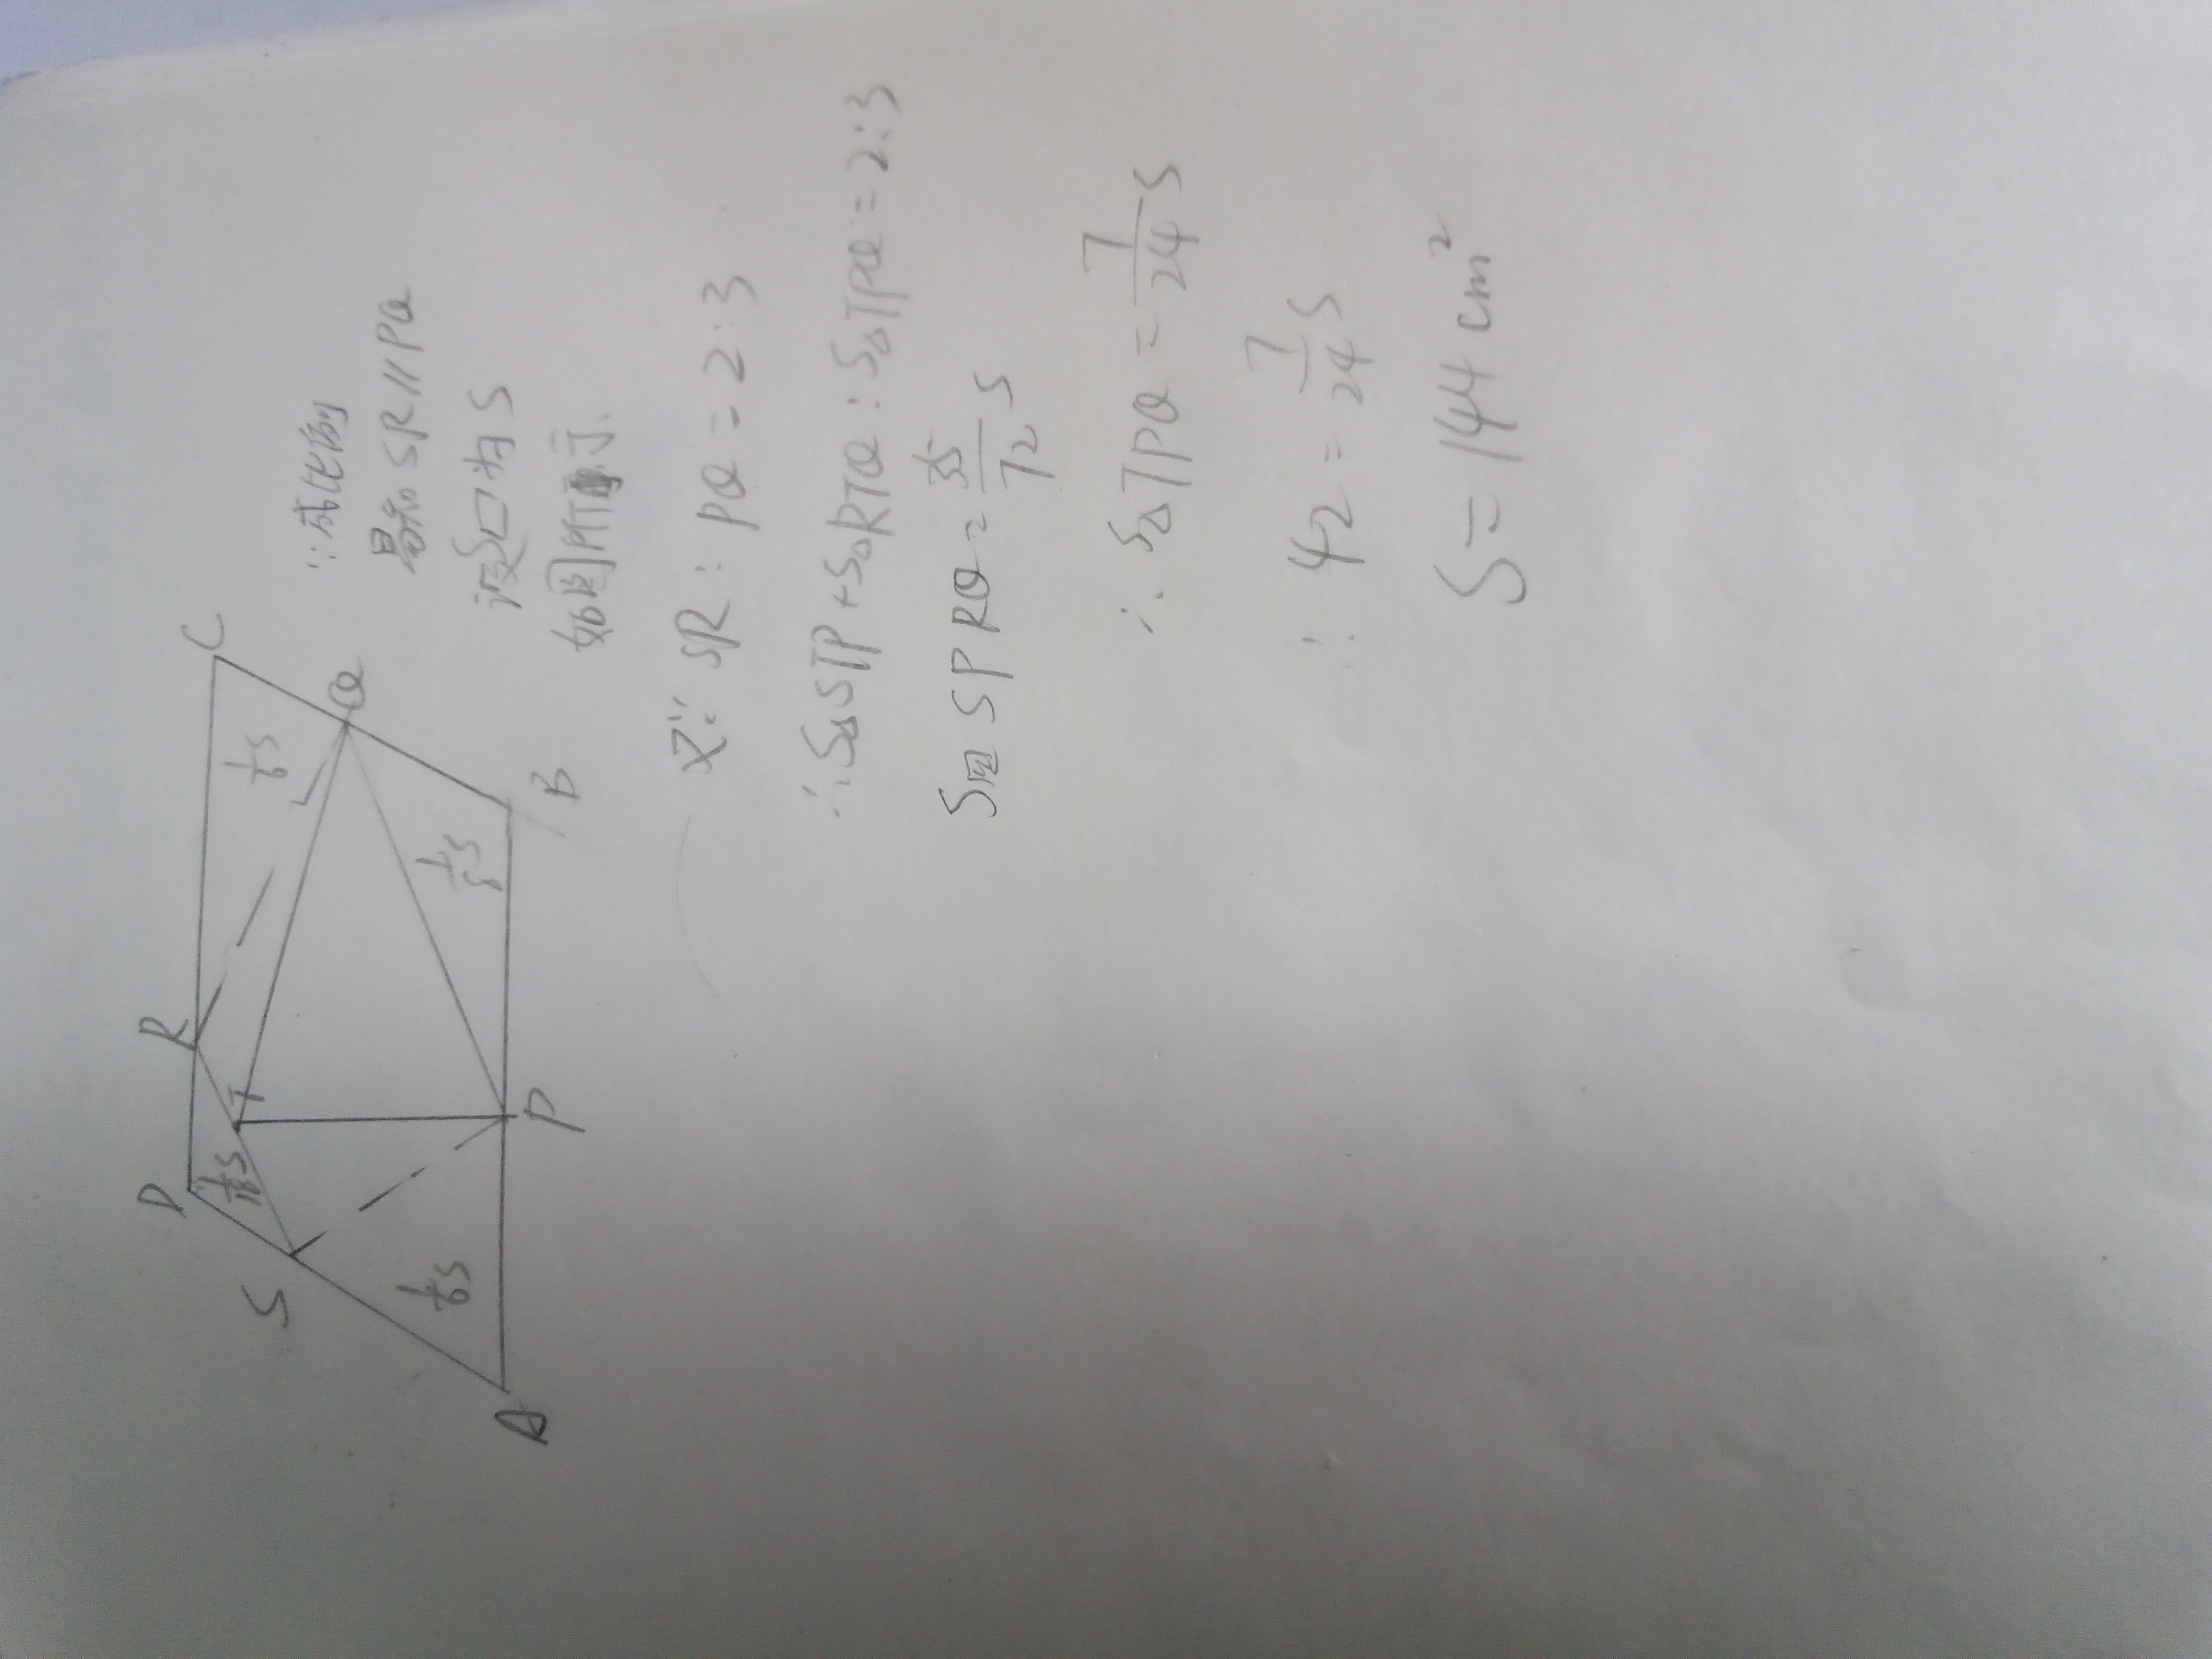 D
R
C
S
T
Q
A
P
B
1/18 S
1/6 S
1/6 S
1/5 S
∵成比例
易知SR∥PQ
设S□为S
如图所示
又∵SR:PQ=2:3
∴S△STP+S△RTQ:S△TPQ=2:3
S四SPRQ=35/72 S
∴S△TPQ=7/24 S
∴42=7/24 S
S=144cm²